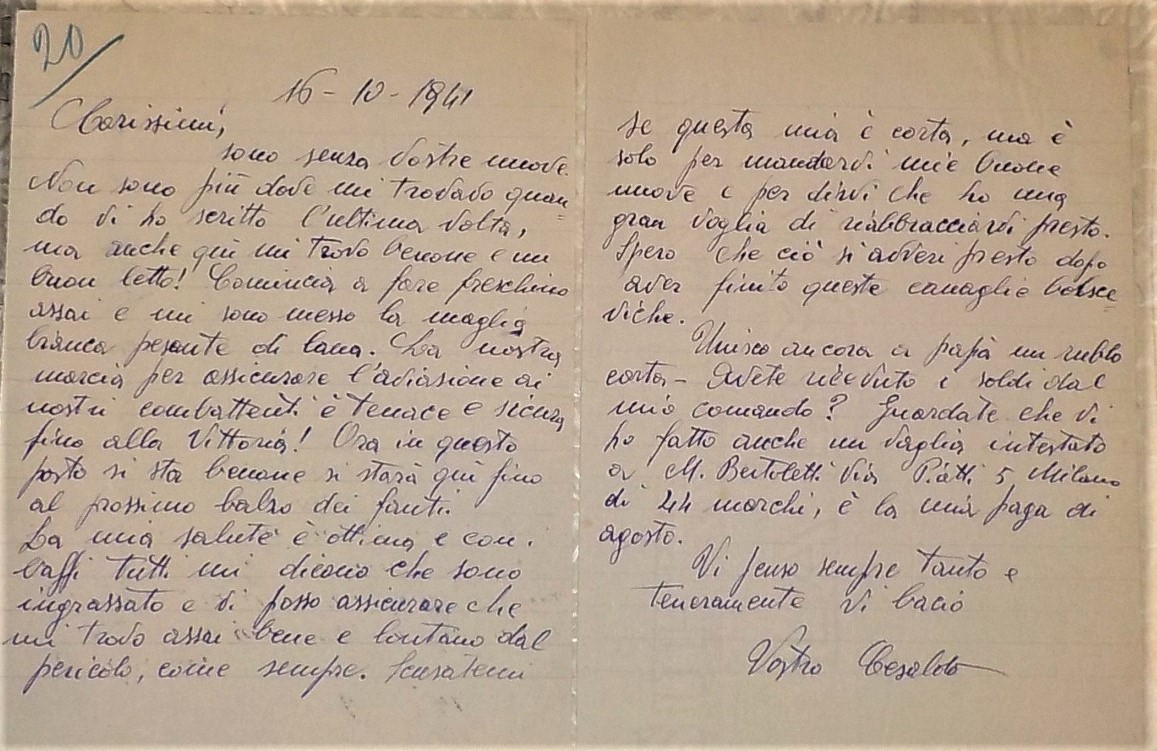 20/
16-10-1941
Carissimi,
sono senza vostre nuove.
Non sono più dove mi trovavo quan=
do vi ho scritto l'ultima volta,
ma anche qui mi trovo benone e un
buon letto! Comincia a fare freschino
assai e mi sono messo la maglia
bianca pesante di lana. La nostra
marcia per assicurare l'aviazione ai
nostri combattenti è tenace e sicura
fino alla Vittoria! Ora in questo
posto si sta benone si starà qui fino
al prossimo balzo dei fanti.
La mia salute è ottima e con i
baffi tutti mi dicono che sono
ingrassato e vi posso assicurare che
mi trovo assai bene e lontano dal
pericolo, come sempre. Scusatemi
se questa mia è corta, ma è
solo per mandarvi mie buone
nuove e per dirvi che ho una
gran voglia di riabbracciarvi presto.
Spero che ciò si avveri presto dopo
aver finito queste canaglie bolsce=
viche.
Unisco ancora a papà un rublo
carta - Avete ricevuto i soldi dal
mio comando? Guardate che vi
ho fatto anche un vaglia intestato
a M. Bertoletti Via Piatti 5 Milano
di 44 marchi, è la mia paga di
agosto.
Vi penso sempre tanto e
teneramente vi bacio
Vostro